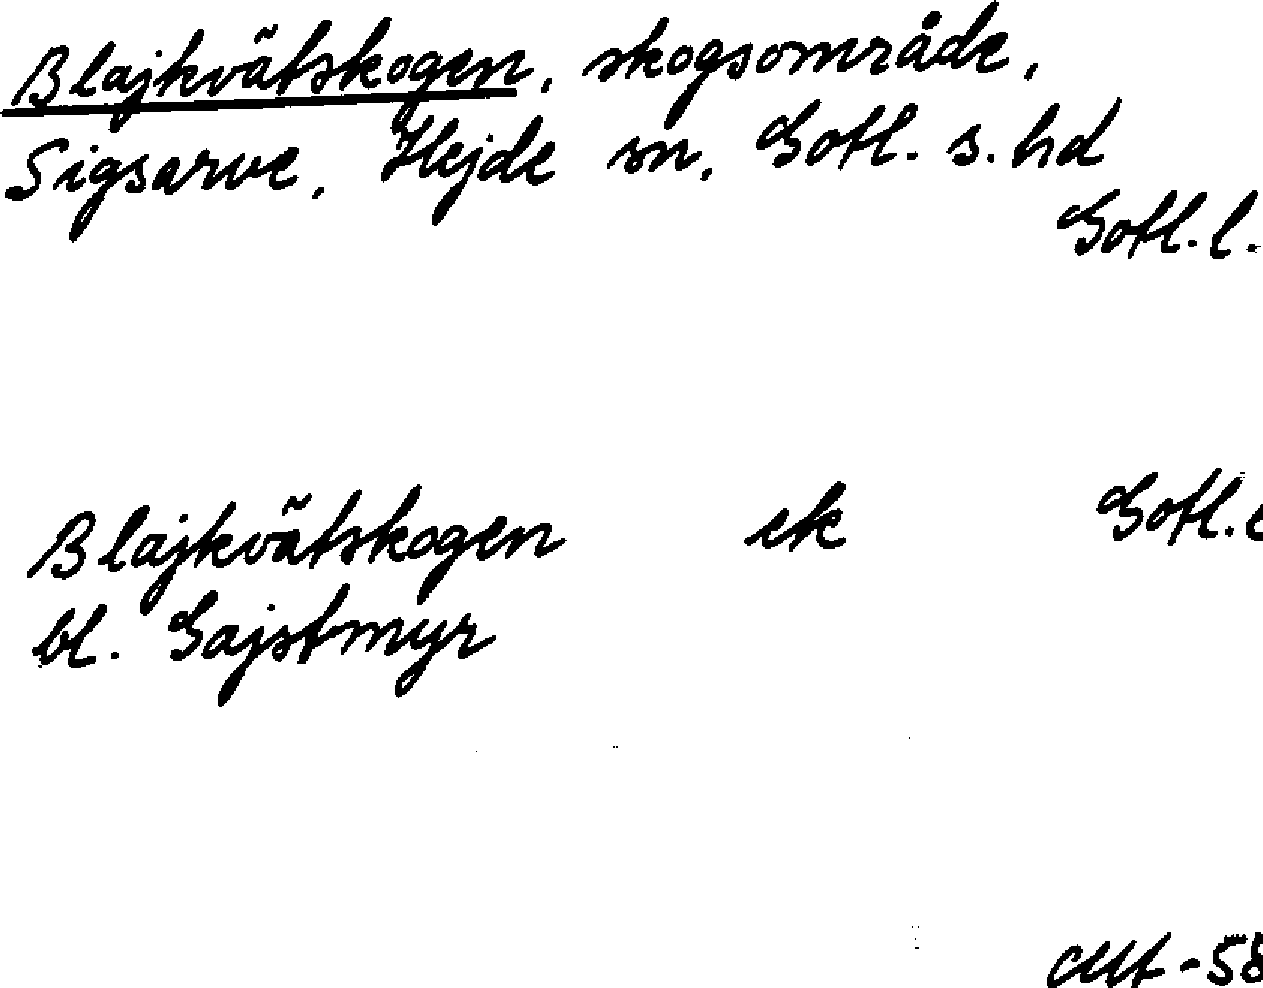 Blajkvätskogen, skogsområde,
Sigsarve, Hejde sn, Gotl. s. hd
Gotl. l.
Blajkvätskogen ek Gotl.
bl. Gajstmyr